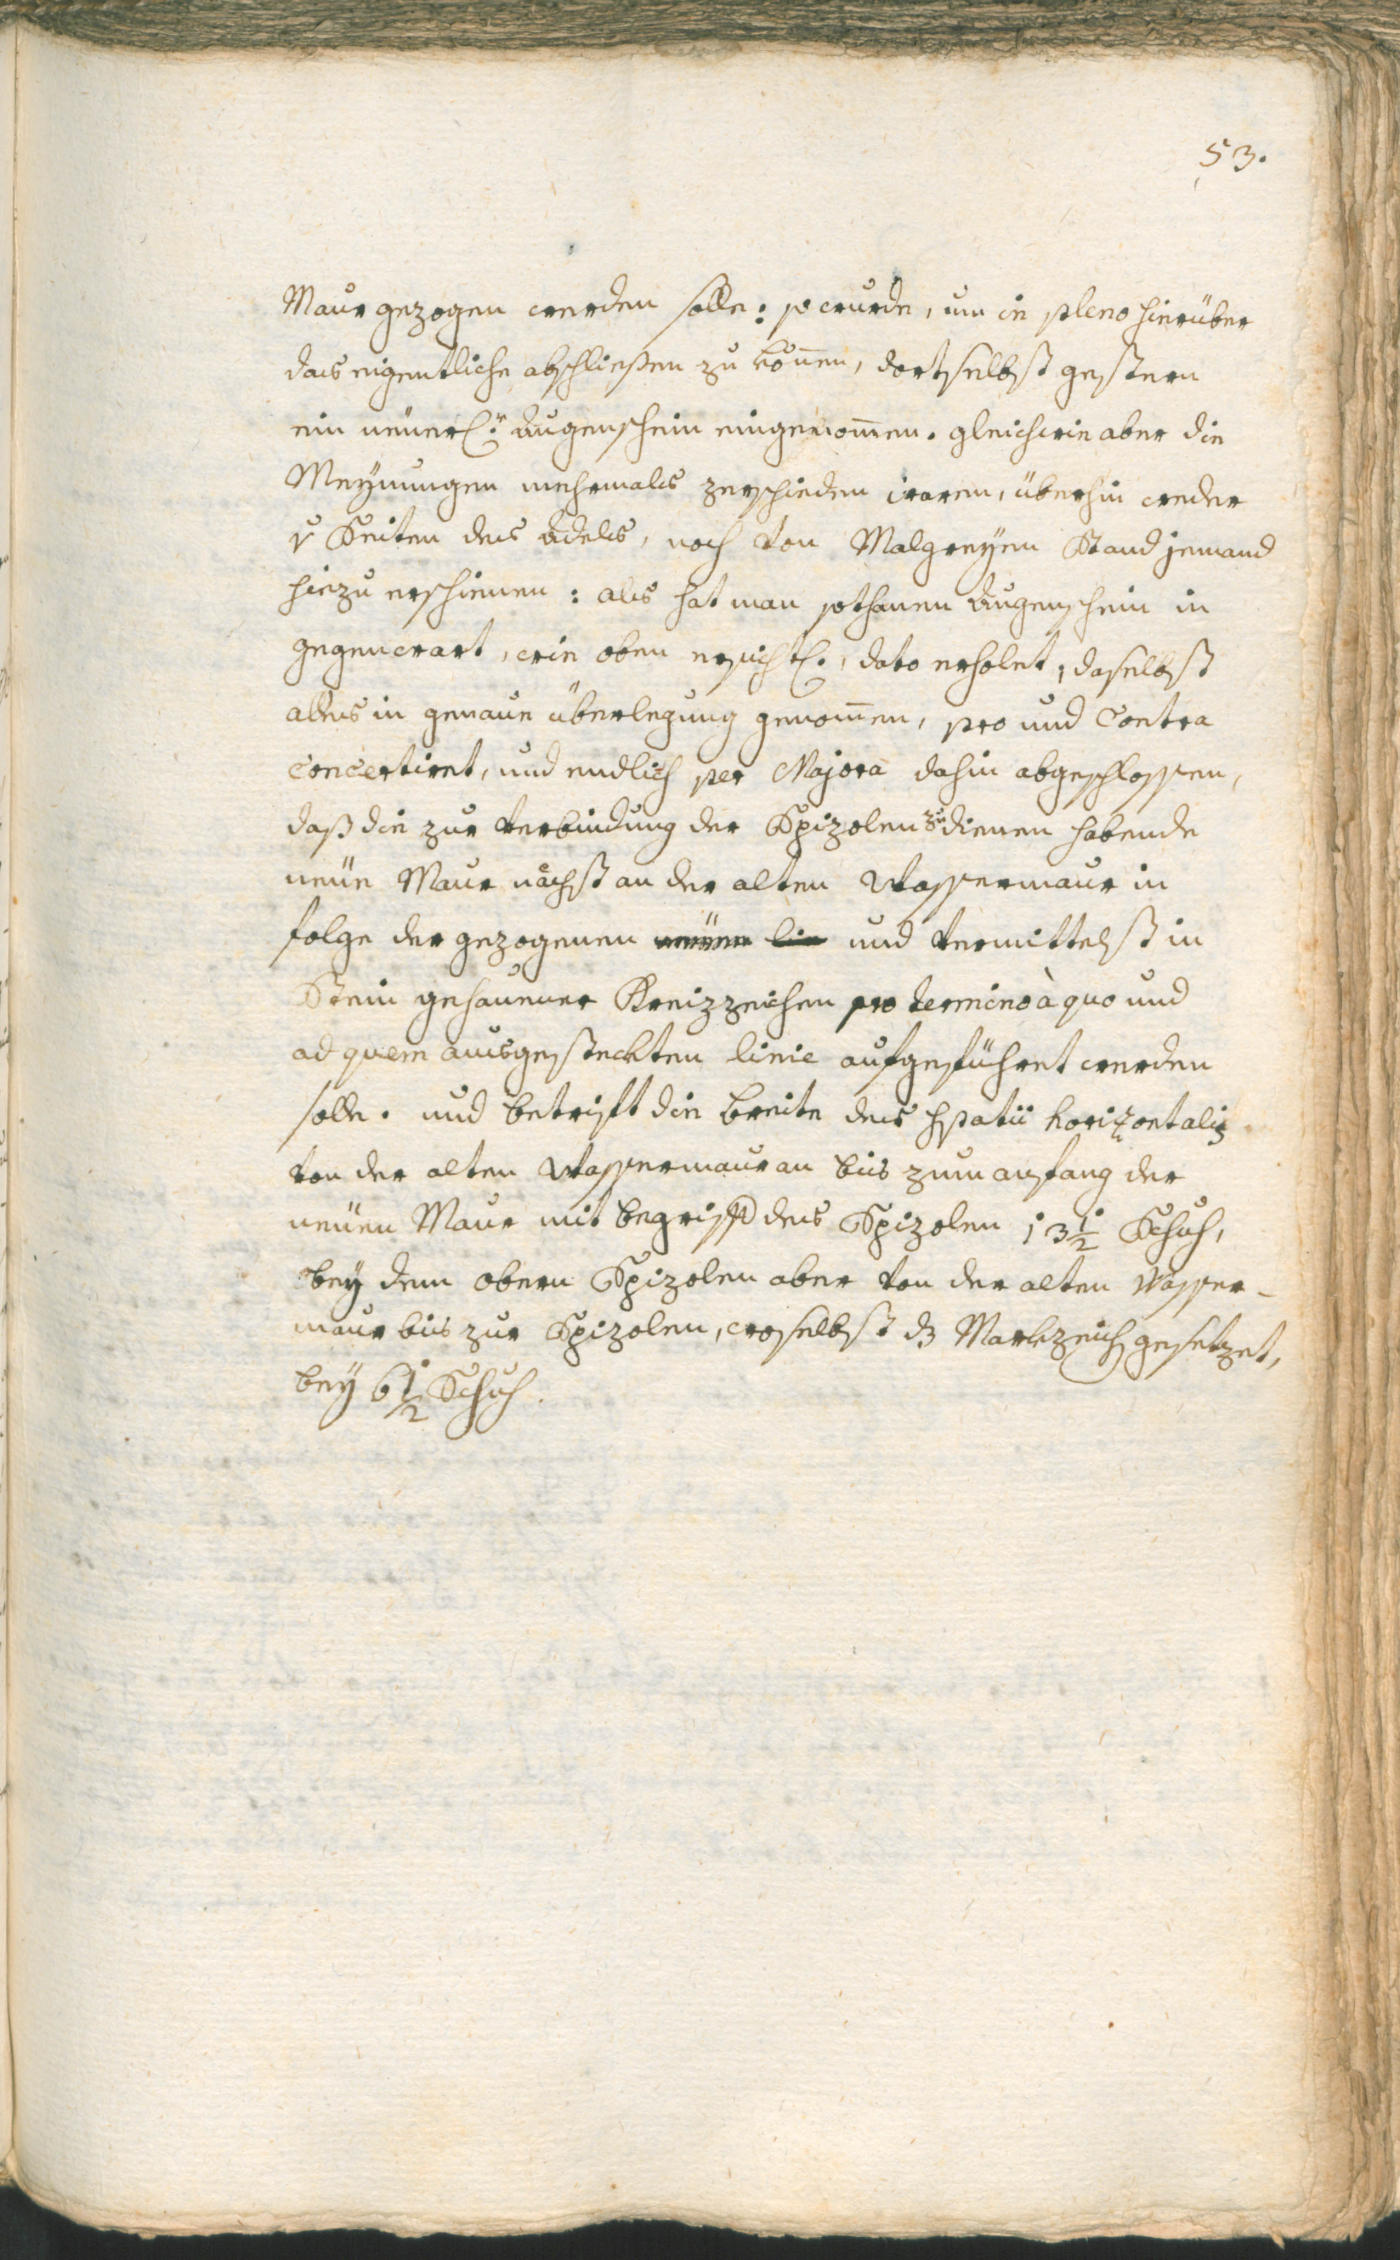 53.
Maur gezogen werden solle: so wurde, um in pleno hierüber
das eigentliche abschließen zu können, dortselbst gestern
ein neüerl: Augenschein eingenom̅en. gleichwie aber die
Meynungen mehrmals zerschieden waren, überhin weder
Seiten des Adels, noch von Malgreyen Stand jemand
hiezu erschienen: als hat man sothanen Augenschein in
gegenwart, wie oben ersichtl:, dato erholet, daselbst
alles in genaue überlegung genom̅en, pro und Contra
Concertiret, und endlich per Majora dahin abgeschlossen,
daß die zur verbindung der Spizolen zu dienen habende
neüe Maur nächst an der alten Wassermaur in
folge der gezogenen neüen lin und vermittelst in
Stein gehauener Kreizzeichen pro termino à quo und
ad quem ausgesteckten linie aufgeführet werden
solle. und betrift die breite des spatii horizontalis
von der alten Wassermaur an bis zum anfang der
neüen Maur mit begriff des Spizolen 13 1/2 Schuh,
bey dem obern Spizolen aber von der alten Wasser-
maur bis zur Spizolen, woselbst dz Markzeich gesetzet,
bey 6 1/2 Schuh.